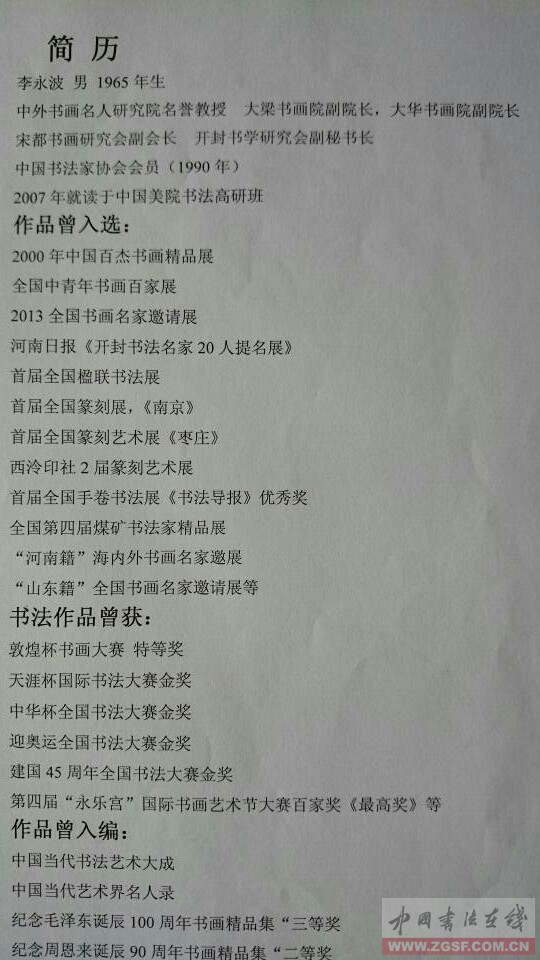 简 历
李永波 男 1965 年生
中外书画名人研究院名誉教授 大梁书画院副院长，大华书画院副院长
宋都书画研究会副会长 开封书学研究会副秘书长
中国书法家协会会员（1990 年）
2007 年就读于中国美院书法高研班
作品曾入选：
2000 年中国百杰书画精品展
全国中青年书画百家展
2013 全国书画名家邀请展
河南日报《开封书法名家 20 人提名展》
首届全国楹联书法展
首届全国篆刻展，《南京》
首届全国篆刻艺术展《枣庄》
西泠印社 2 届篆刻艺术展
首届全国手卷书法展《书法导报》优秀奖
全国第四届煤矿书法家精品展
“河南籍”海内外书画名家邀展
“山东籍”全国书画名家邀请展等
书法作品曾获：
敦煌杯书画大赛 特等奖
天涯杯国际书法大赛金奖
中华杯全国书法大赛金奖
迎奥运全国书法大赛金奖
建国 45 周年全国书法大赛金奖
第四届“永乐宫”国际书画艺术节大赛百家奖《最高奖》等
作品曾入编：
中国当代书法艺术大成
中国当代艺术界名人录
纪念毛泽东诞辰 100 周年书画精品集“三等奖
纪念周恩来诞辰 90 周年书画精品集“二等奖
中国书法在线
WWW.ZGSF.COM.CN